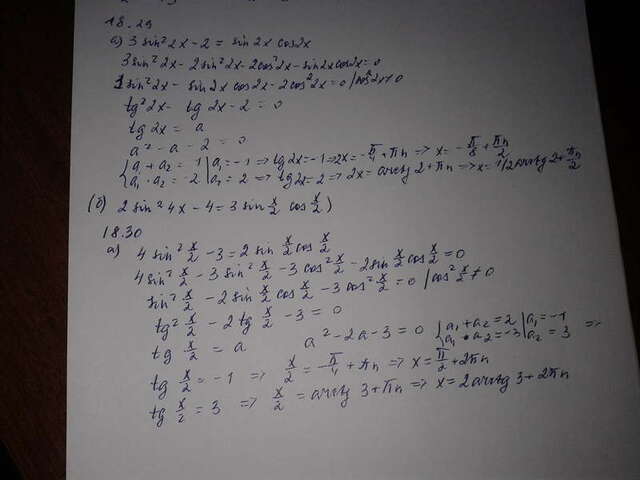 18.29
а) 3 sin² 2x - 2 = sin 2x cos 2x
3 sin² 2x - 2 sin² 2x - 2 cos² 2x - sin 2x cos 2x = 0
1 sin² 2x - sin 2x cos 2x - 2 cos² 2x = 0 / cos² 2x ≠ 0
tg² 2x - tg 2x - 2 = 0
tg 2x = a
a² - a - 2 = 0
{ a₁ + a₂ = 1 | a₁ = -1 => tg 2x = -1 => 2x = -π/4 + πn => x = -π/8 + πn/2
{ a₁ · a₂ = -2 | a₁ = 2 => tg 2x = 2 => 2x = arctg 2 + πn => x = 1/2 arctg 2 + πn/2
(б) 2 sin² 4x - 4 = 3 sin x/2 cos x/2)
18.30
а) 4 sin² x/2 - 3 = 2 sin x/2 cos x/2
4 sin² x/2 - 3 sin² x/2 - 3 cos² x/2 - 2 sin x/2 cos x/2 = 0
sin² x/2 - 2 sin x/2 cos x/2 - 3 cos² x/2 = 0 / cos² x/2 ≠ 0
tg² x/2 - 2 tg x/2 - 3 = 0
tg x/2 = a a² - 2a - 3 = 0 { a₁ + a₂ = 2 | a₁ = -1
{ a₁ · a₂ = -3 | a₂ = 3 =>
tg x/2 = -1 => x/2 = -π/4 + πn => x = π/2 + 2πn
tg x/2 = 3 => x/2 = arctg 3 + πn => x = 2 arctg 3 + 2πn